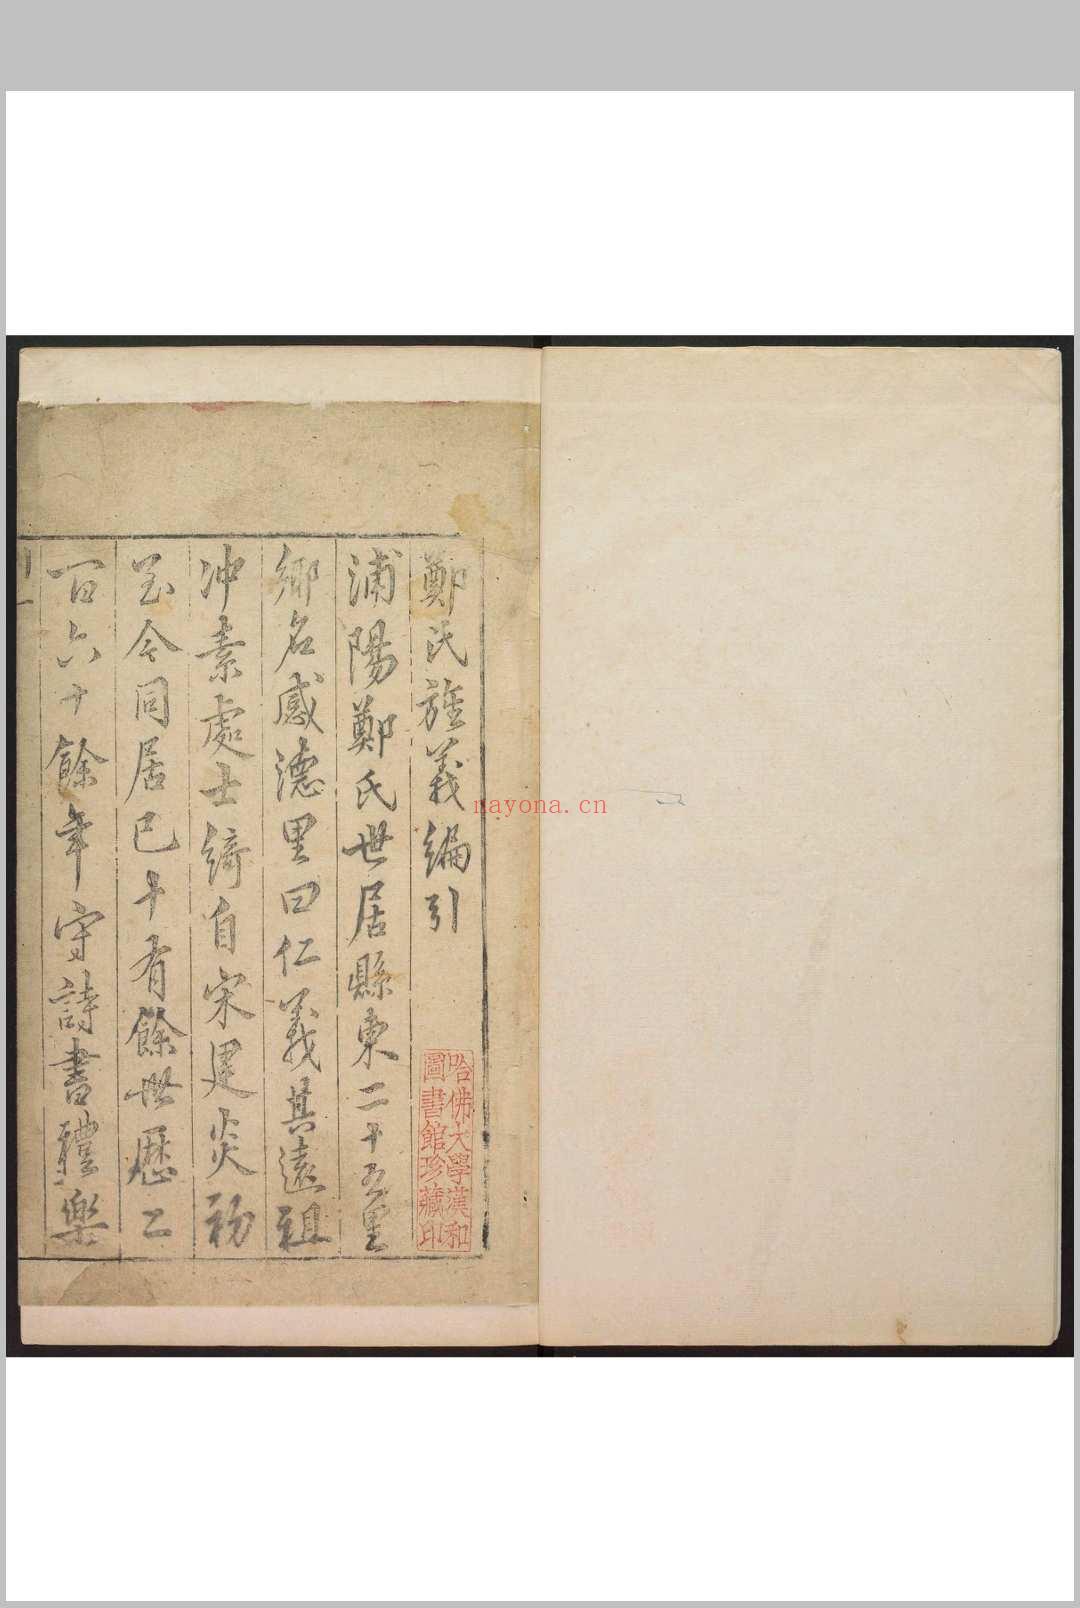 鄭氏旌義編引
浦陽鄭氏世居縣東二十五里
鄉名感德里曰仁義其遠祖
冲素處士綺自宋建炎初
至今同居已十有餘世歷二
百六十餘年守詩書禮樂
哈佛大學漢和
圖書館珍藏印
nayona.cn